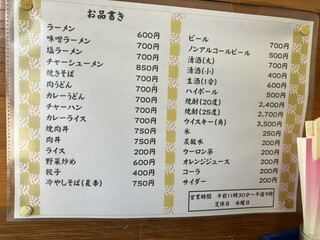 お品書き
ラーメン 600円
味噌ラーメン 700円
塩ラーメン 700円
チャーシューメン 850円
焼きそば 700円
肉うどん 700円
カレーうどん 700円
チャーハン 700円
カレーライス 700円
焼肉丼 750円
肉丼 750円
ライス 200円
野菜炒め 600円
餃子 400円
冷やしそば(夏季) 750円
ビール 700円
ノンアルコールビール 500円
清酒(大) 700円
清酒(小) 400円
生酒(1合) 500円
ハイボール 500円
焼酎(20度) 2,400円
焼酎(25度) 2,700円
ウイスキー(角) 3,500円
氷 250円
炭酸水 200円
ウーロン茶 200円
オレンジジュース 200円
コーラ 200円
サイダー 200円
営業時間 午前11時30分～午後9時
定休日 水曜日